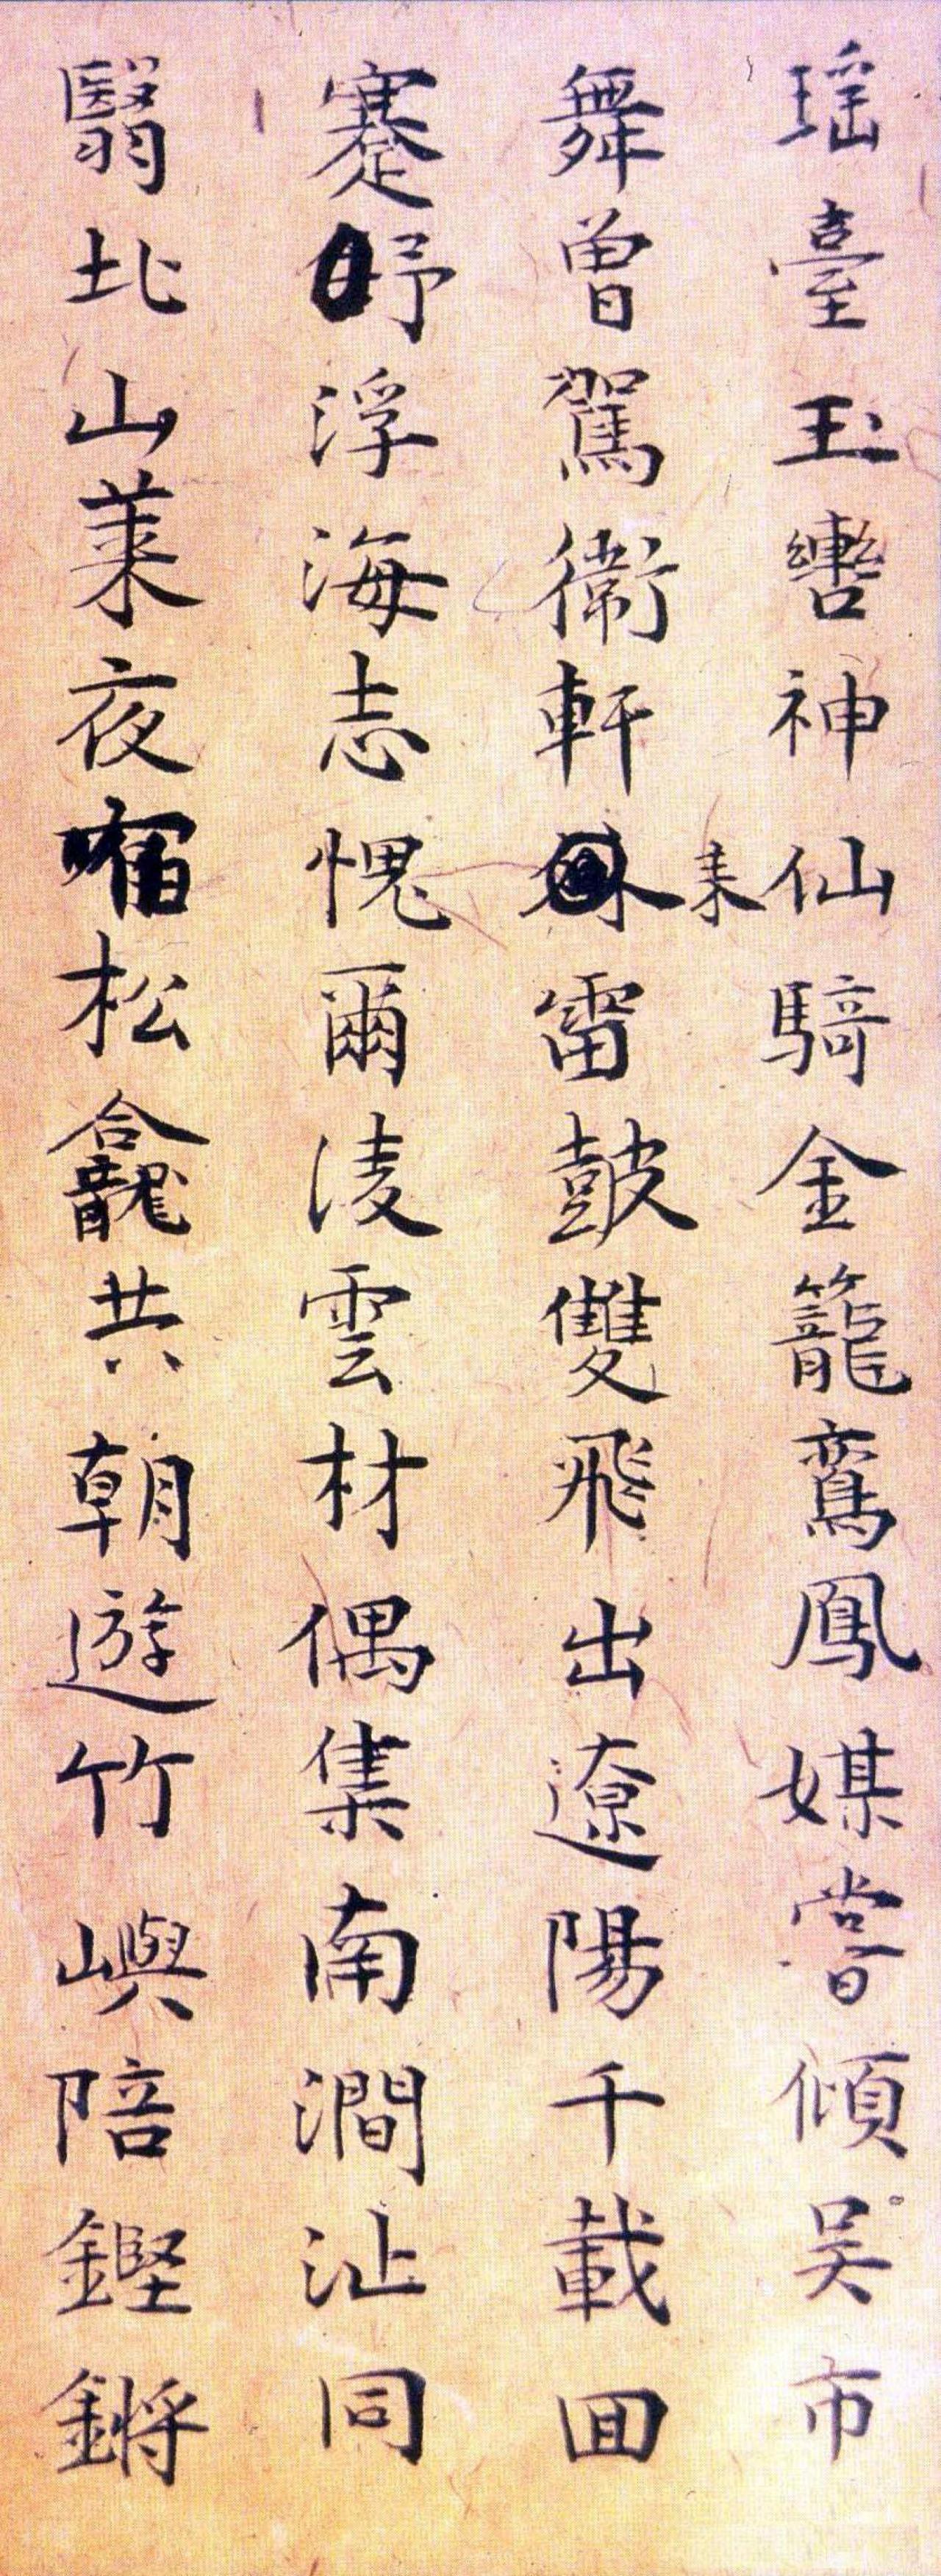 瑶臺玉轡神仙騎金籠鸞鳳媒嘗傾吴市
舞曾駕衛軒来雷鼓雙飛出遼陽千載囬
蹇予浮海志愧爾淩雲材偶集南澗沚同
翳北山萊夜宿松龕共朝遊竹嶼陪鏗鏘